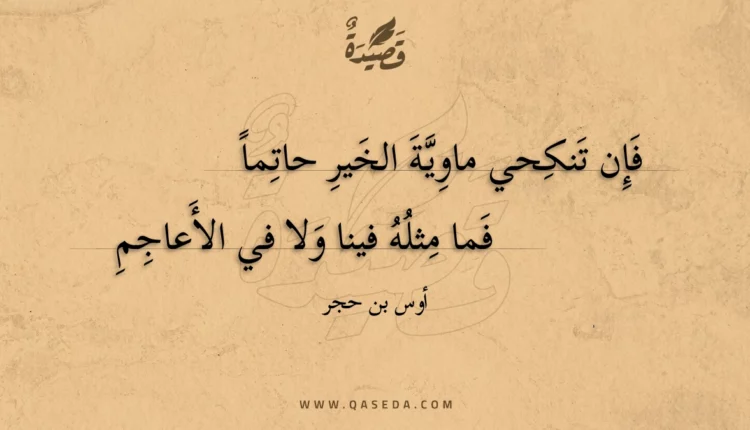 قَصِيدَةٌ
فَإِن تَنكِحي ماوِيَّةَ الخَيرِ حاتِماً
فَما مِثلُهُ فينا وَلا في الأَعاجِمِ
أوس بن حجر
WWW.QASEDA.COM